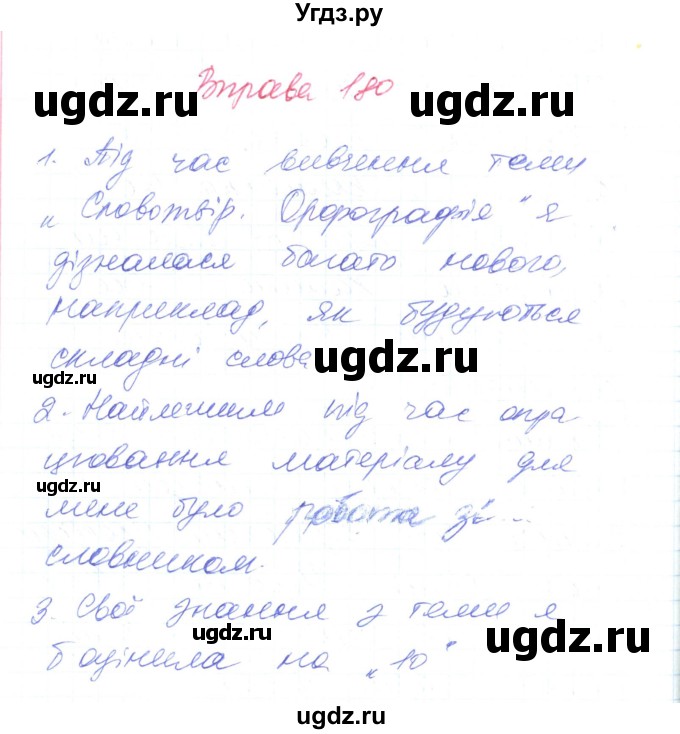 Угдз.ру
Вправа 180
ugdz.ru ugdz.ru
1. Під час вивчення теми
„ Словотвір. Орфографія“ я
дізналася багато нового,
наприклад, як будуються
складні слова
ugdz.ru ugdz.ru
2. Найлегшим під час опра
цювання матеріалу для
ugdz.ru
мене було робота зі
словником.
3. Свої знання з теми я
ugdz.ru ugdz.ru
б оцінила на „10“
ugdz.ru